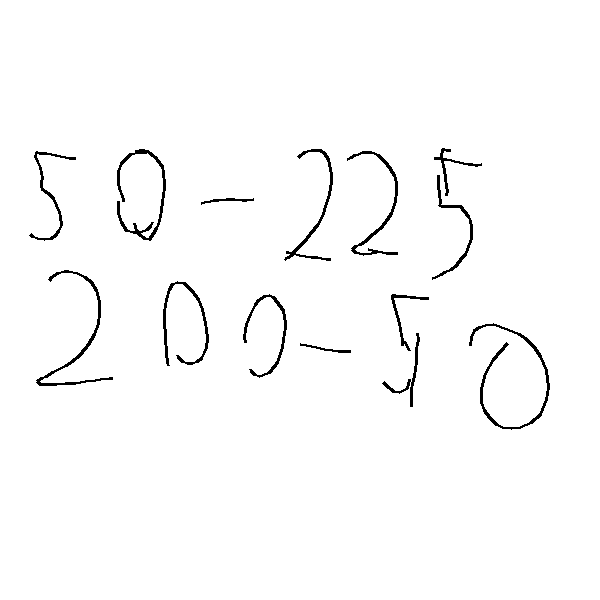 50-225
200-50